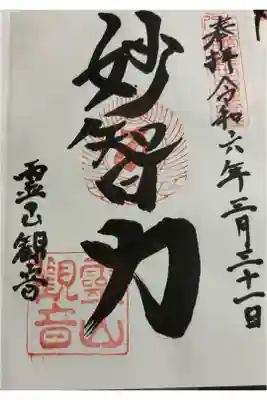 奉拝 令和六年三月三十一日
妙智力
霊山観音
霊山
観音